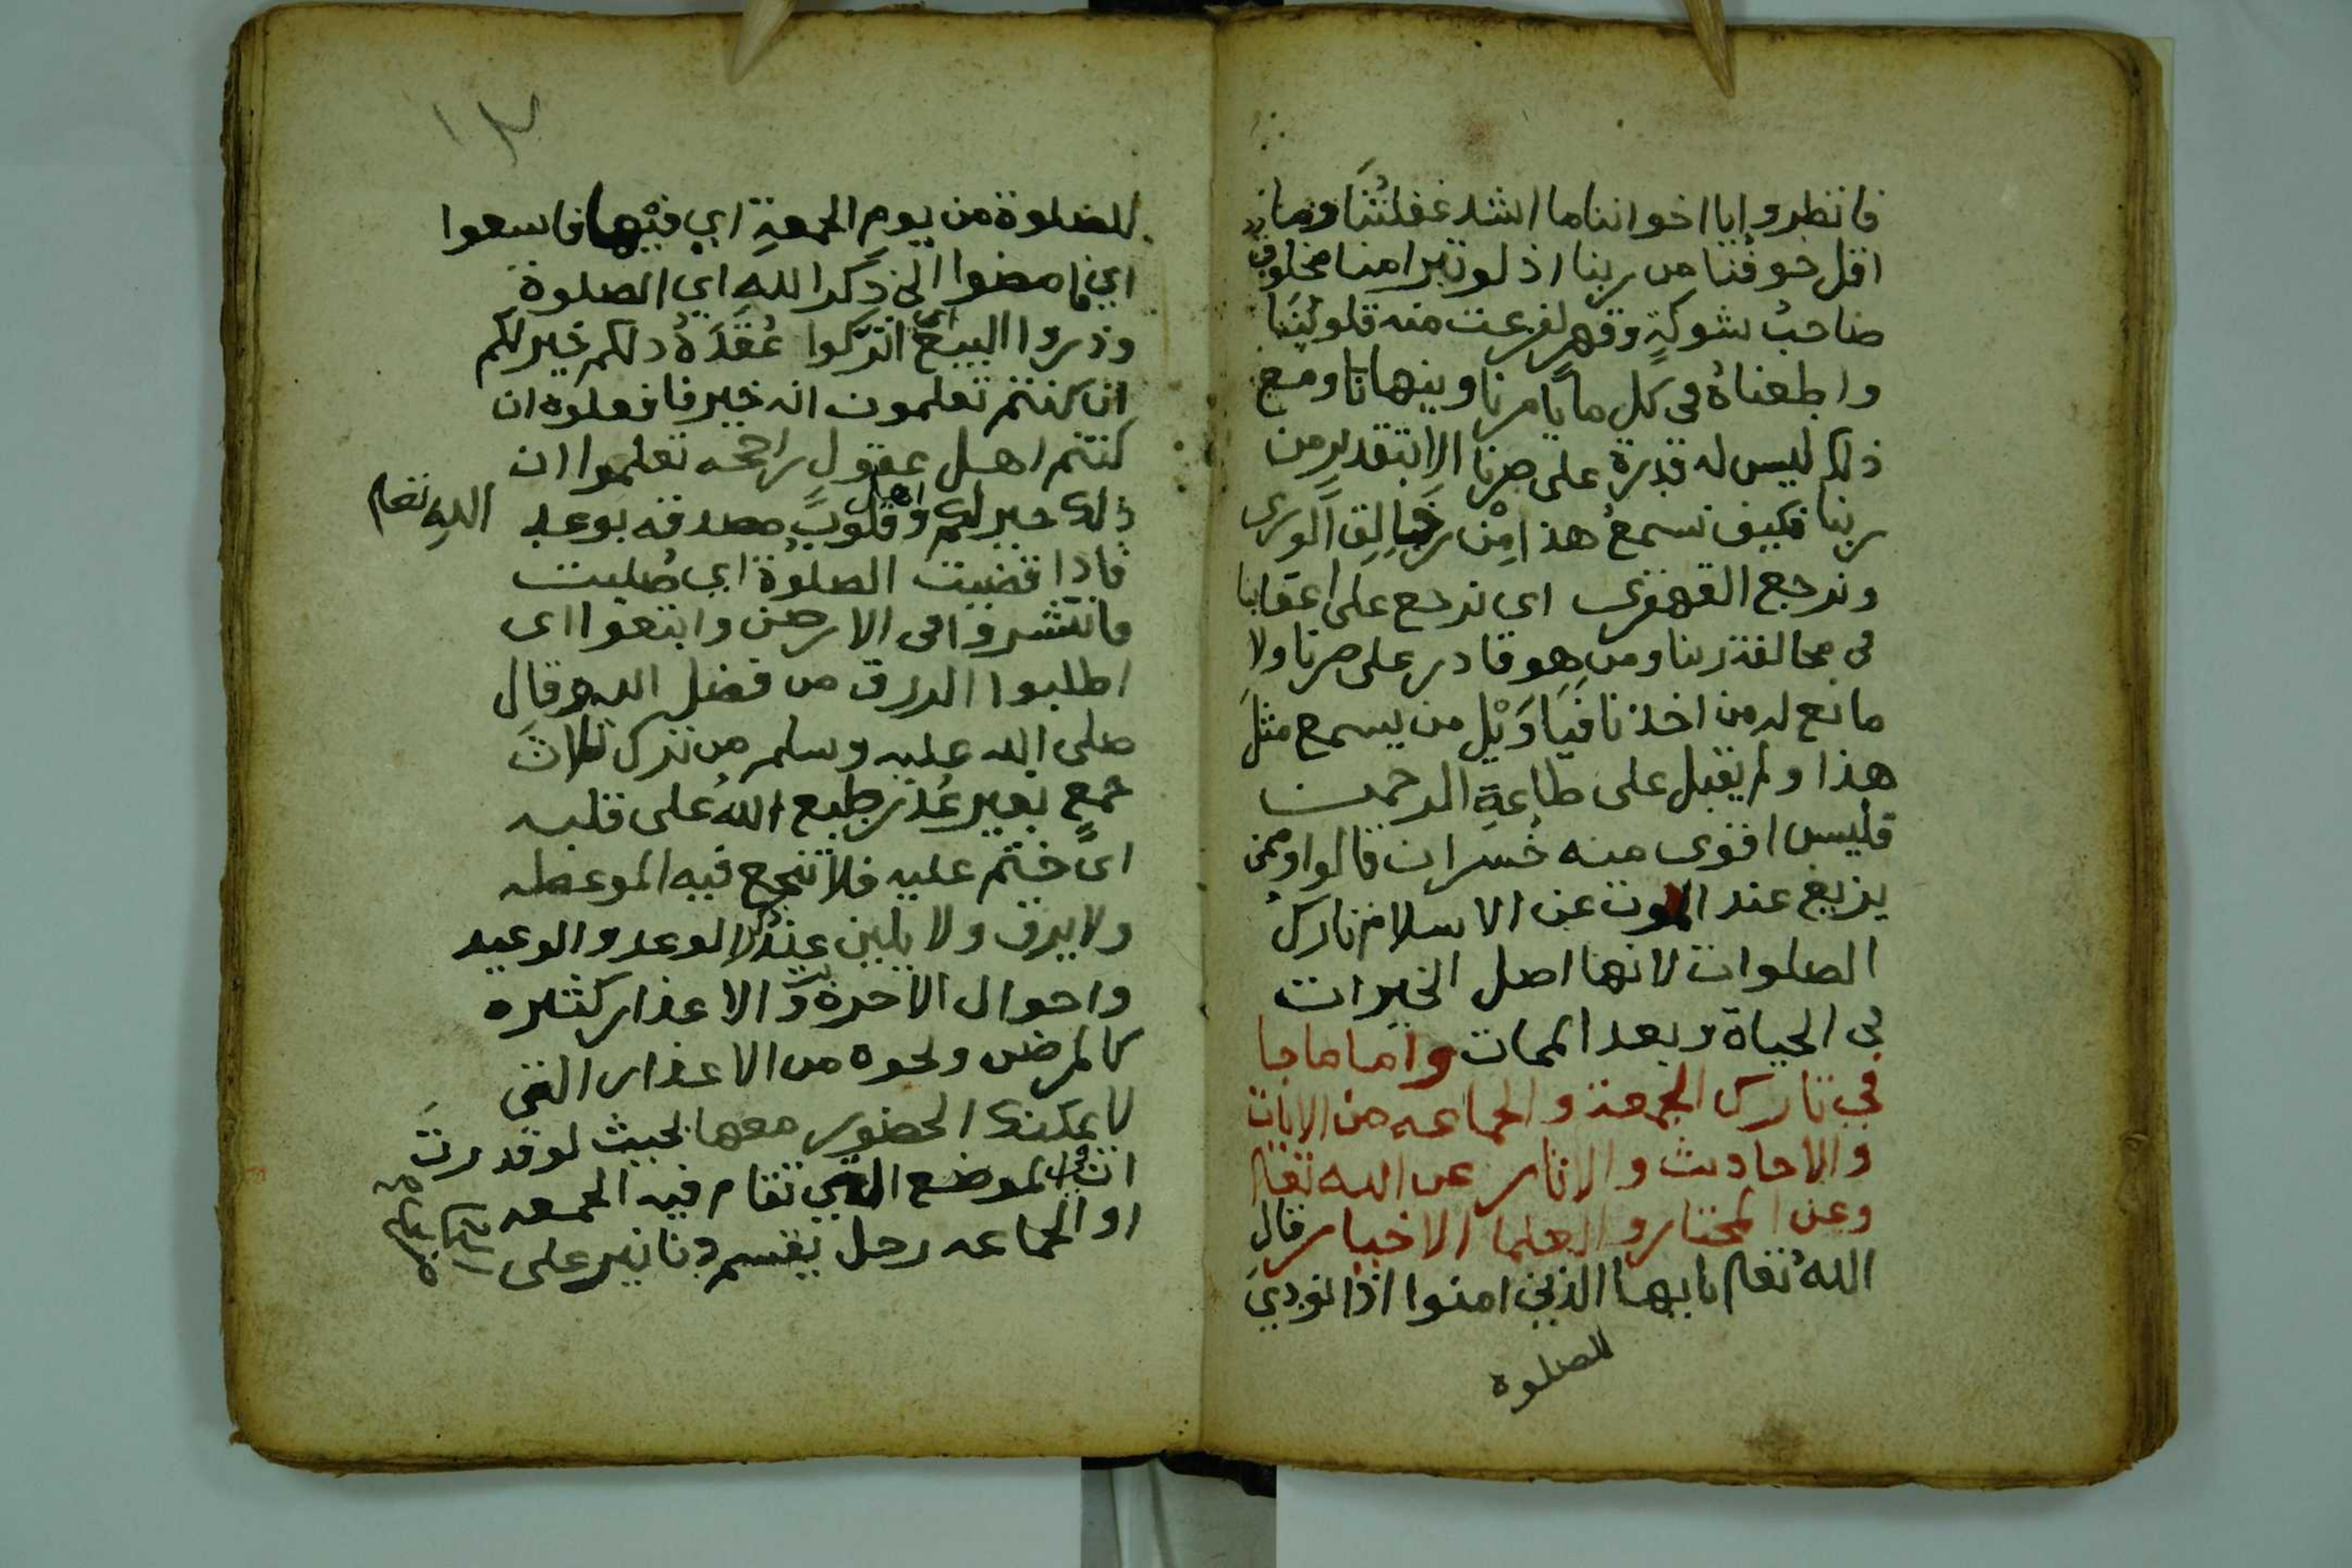 فانظروا يا اخواننا ما اشد غفلتنا وما
اقل خوفنا من ربنا اذ لو تبرا منا مخلوق
صاحب شوكةٍ وقهرٍ لفزعت منه قلوبنا
واطعناهُ فى كل ما يامرنا وينهانا ومع
ذلك ليس له قدرة على ضرنا الا بتقديرٍ من
ربنا فكيف نسمعُ هذا مِنْ خَالِق الورى
ونرجع القهقرى اى نرجع على اعقابنا
فى مخالفة ربنا ومن هو قادر على ضرنا ولا
مانع له من اخذنا فَيَا وَيْل من يسمع مثلَ
هذا ولم يقبل على طاعةِ الرحمن
فليس اقوى منه خُسران قالوا وممن
يزيغ عند الموت عن الاسلام تارك
الصلوات لانها اصل الخيرات
فى الحياة وبعد الممات واما ما جا
في تارك الجمعة والجماعه من الايات
والاحاديث والاثار عن الله تعالى
وعن المختار والعلما الاخيار قال
اللهُ تعالى يايها الذين امنوا اذا نودي
للصلوة
١٣
للصلوة من يوم الجمعةِ اي فيْها فاسعوا
اي فامضوا الى ذكر اللهِ اي الصلوة
وذروا البيع اى اتركوا عُقَدَهُ ذلكم خير لكم
ان كنتم تعلمون انه خير فافعلوه ان
كنتم اهل عقولٍ راجحه تعلموا ان
ذلك خير لكم واهل قلوبٍ مصدقه بوعد الله تعالى
فاذا قضيت الصلوةُ اي صُليت
فانتشروا فى الارض وابتغوا اى
اطلبوا الرزق من فضل الله وقال
صلى الله عليه وسلم من ترك ثلاثَ
جمعٍ بغير عُذر طبع اللهُ على قلبه
اى ختم عليه فلا تنجع فيه الموعظه
ولا يرق ولا يلين عند ذكر الوعد والوعيد
واحوال الاخرة والاعذار كثيره
كالمرض ونحوه من الاعذار التى
لا يمكنك الحضور معها بحيث لو قدرتَ
ان فى الموضع الذي تقام فيه الجمعه
او الجماعه رجل يقسم دنانير على